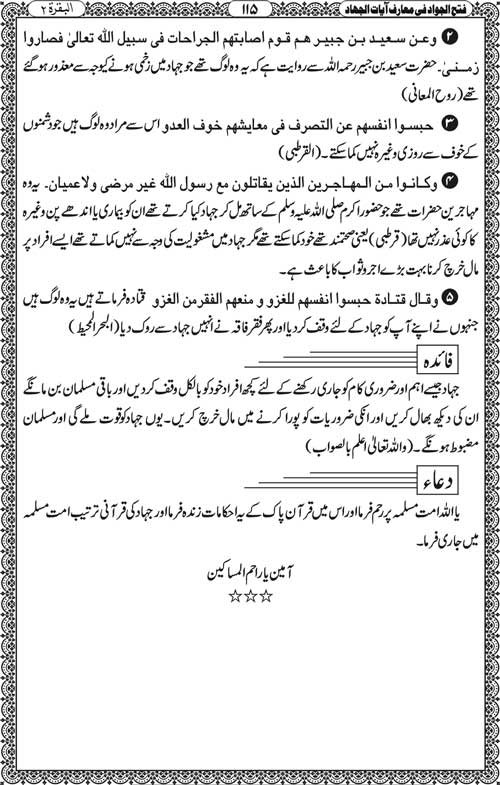 فتح الجواد فی معارف آیات الجهاد ۱۱۵ البقرة ۲
۲ وعن سعيد بن جبير هم قوم اصابتهم الجراحات فى سبيل الله تعالىٰ فصاروا
زمنىٰ۔ حضرت سعید بن جبیر رحمہ اللہ سے روایت ہے کہ یہ وہ لوگ تھے جو جہاد میں زخمی ہونے کیوجہ سے معذور ہو گئے
تھے (روح المعانی)
۳ حبسوا انفسهم عن التصرف فى معايشهم خوف العدو اس سے مراد وہ لوگ ہیں جو دشمنوں
کے خوف سے روزی وغیرہ نہیں کما سکتے۔ (القرطبی)
۴ وكانوا من المهاجرين الذين يقاتلون مع رسول الله غير مرضى ولا عميان۔ یہ وہ
مہاجرین حضرات تھے جو حضور اکرم صلی اللہ علیہ وسلم کے ساتھ مل کر جہاد کیا کرتے تھے ان کو بیماری یا اندھے پن وغیرہ
کا کوئی عذر نہیں تھا (قرطبی) یعنی صحتمند تھے خود کما سکتے تھے مگر جہاد میں مشغولیت کی وجہ سے نہیں کماتے تھے ایسے افراد پر
مال خرچ کرنا بہت بڑے اجر و ثواب کا باعث ہے۔
۵ وقال قتادة حبسوا انفسهم للغزو و منعهم الفقر من الغزو قتادہ فرماتے ہیں یہ وہ لوگ ہیں
جنہوں نے اپنے آپ کو جہاد کے لئے وقف کر دیا اور پھر فقر فاقہ نے انہیں جہاد سے روک دیا (البحر المحیط)
فائدہ
جہاد جیسے اہم اور ضروری کام کو جاری رکھنے کے لئے کچھ افراد خود کو بالکل وقف کر دیں اور باقی مسلمان بن مانگے
ان کی دیکھ بھال کریں اور انکی ضروریات کو پورا کرنے میں مال خرچ کریں۔ یوں جہاد کو قوت ملے گی اور مسلمان
مضبوط ہونگے۔ (واللہ تعالیٰ اعلم بالصواب)
دعاء
یا اللہ امت مسلمہ پر رحم فرما اور اس میں قرآن پاک کے یہ احکامات زندہ فرما اور جہاد کی قرآنی ترتیب امت مسلمہ
میں جاری فرما۔
آمین یا راحم المساکین
☆☆☆